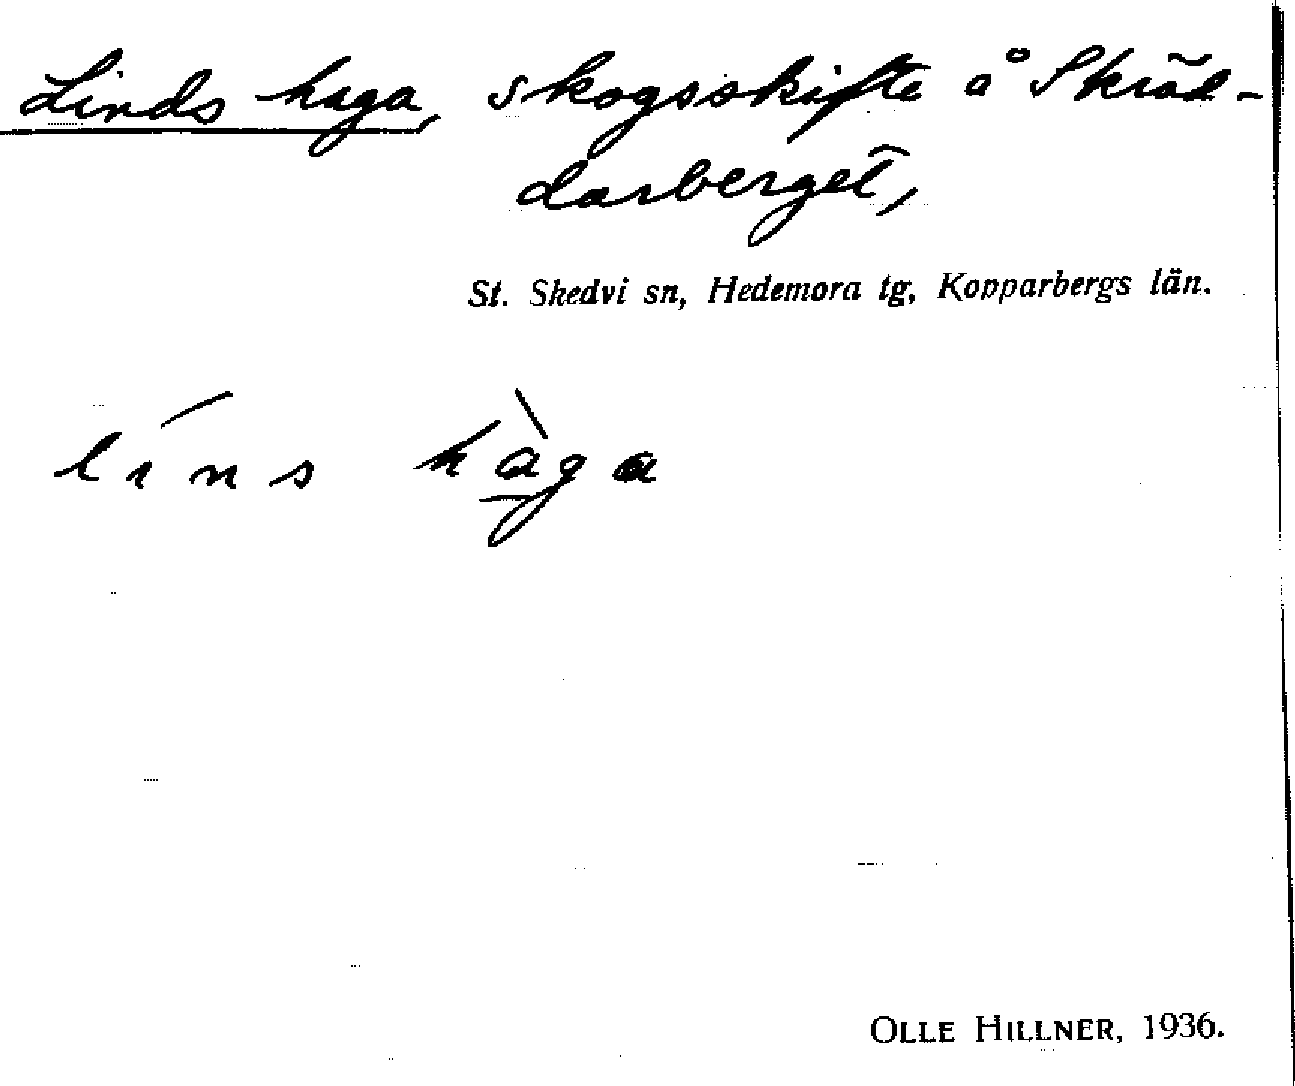 Linds haga, skogsskifte å Skräd-
darberget,
St. Skedvi sn, Hedemora tg, Kopparbergs län.
líns hàga
OLLE HILLNER, 1936.